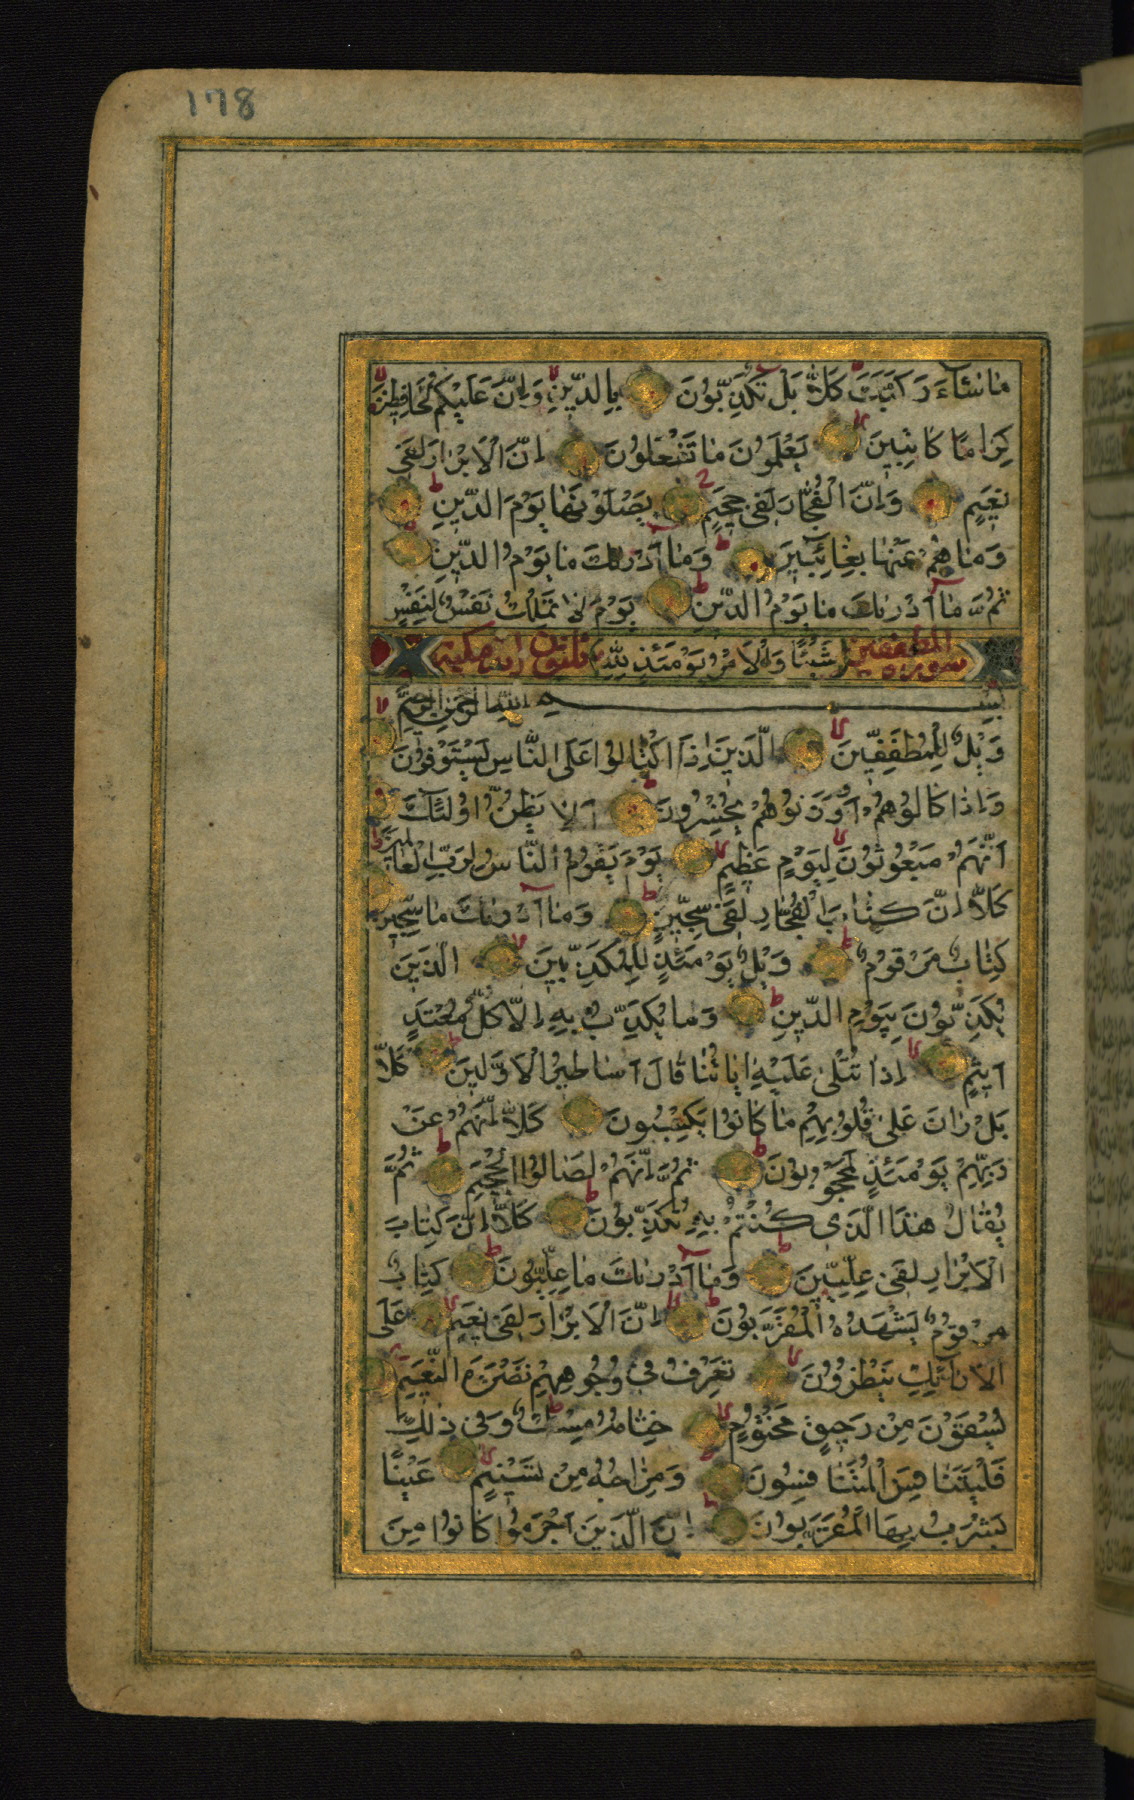 178
مَا شَاءَ رَكَّبَكَ كَلَّا بَلْ تُكَذِّبُونَ بِالدِّينِ وَإِنَّ عَلَيْكُمْ لَحَافِظِينَ
كِرَامًا كَاتِبِينَ يَعْلَمُونَ مَا تَفْعَلُونَ إِنَّ الْأَبْرَارَ لَفِي
نَعِيمٍ وَإِنَّ الْفُجَّارَ لَفِي جَحِيمٍ يَصْلَوْنَهَا يَوْمَ الدِّينِ
وَمَا هُمْ عَنْهَا بِغَائِبِينَ وَمَا أَدْرٰىكَ مَا يَوْمُ الدِّينِ
ثُمَّ مَا أَدْرٰىكَ مَا يَوْمُ الدِّينِ يَوْمَ لَا تَمْلِكُ نَفْسٌ لِنَفْسٍ
سورة المطففين شَيْئًا وَالْأَمْرُ يَوْمَئِذٍ لِلَّهِ ثلثون آية مكية
بِسْمِ اللهِ الرَّحْمٰنِ الرَّحِيمِ
وَيْلٌ لِلْمُطَفِّفِينَ الَّذِينَ إِذَا اكْتَالُوا عَلَى النَّاسِ يَسْتَوْفُونَ
وَإِذَا كَالُوهُمْ أَوْ وَزَنُوهُمْ يُخْسِرُونَ أَلَا يَظُنُّ أُولٰئِكَ
أَنَّهُمْ مَبْعُوثُونَ لِيَوْمٍ عَظِيمٍ يَوْمَ يَقُومُ النَّاسُ لِرَبِّ الْعَالَمِينَ
كَلَّا إِنَّ كِتَابَ الْفُجَّارِ لَفِي سِجِّينٍ وَمَا أَدْرٰىكَ مَا سِجِّينٌ
كِتَابٌ مَرْقُومٌ وَيْلٌ يَوْمَئِذٍ لِلْمُكَذِّبِينَ الَّذِينَ
يُكَذِّبُونَ بِيَوْمِ الدِّينِ وَمَا يُكَذِّبُ بِهِ إِلَّا كُلُّ مُعْتَدٍ
أَثِيمٍ إِذَا تُتْلَى عَلَيْهِ آيَاتُنَا قَالَ أَسَاطِيرُ الْأَوَّلِينَ كَلَّا
بَلْ رَانَ عَلَى قُلُوبِهِمْ مَا كَانُوا يَكْسِبُونَ كَلَّا إِنَّهُمْ عَنْ
رَبِّهِمْ يَوْمَئِذٍ لَمَحْجُوبُونَ ثُمَّ إِنَّهُمْ لَصَالُوا الْجَحِيمِ ثُمَّ
يُقَالُ هٰذَا الَّذِي كُنْتُمْ بِهِ تُكَذِّبُونَ كَلَّا إِنَّ كِتَابَ
الْأَبْرَارِ لَفِي عِلِّيِّينَ وَمَا أَدْرٰىكَ مَا عِلِّيُّونَ كِتَابٌ
مَرْقُومٌ يَشْهَدُهُ الْمُقَرَّبُونَ إِنَّ الْأَبْرَارَ لَفِي نَعِيمٍ عَلَى
الْأَرَائِكِ يَنْظُرُونَ تَعْرِفُ فِي وُجُوهِهِمْ نَضْرَةَ النَّعِيمِ
يُسْقَوْنَ مِنْ رَحِيقٍ مَخْتُومٍ خِتَامُهُ مِسْكٌ وَفِي ذٰلِكَ
فَلْيَتَنَافَسِ الْمُتَنَافِسُونَ وَمِزَاجُهُ مِنْ تَسْنِيمٍ عَيْنًا
يَشْرَبُ بِهَا الْمُقَرَّبُونَ إِنَّ الَّذِينَ أَجْرَمُوا كَانُوا مِنَ